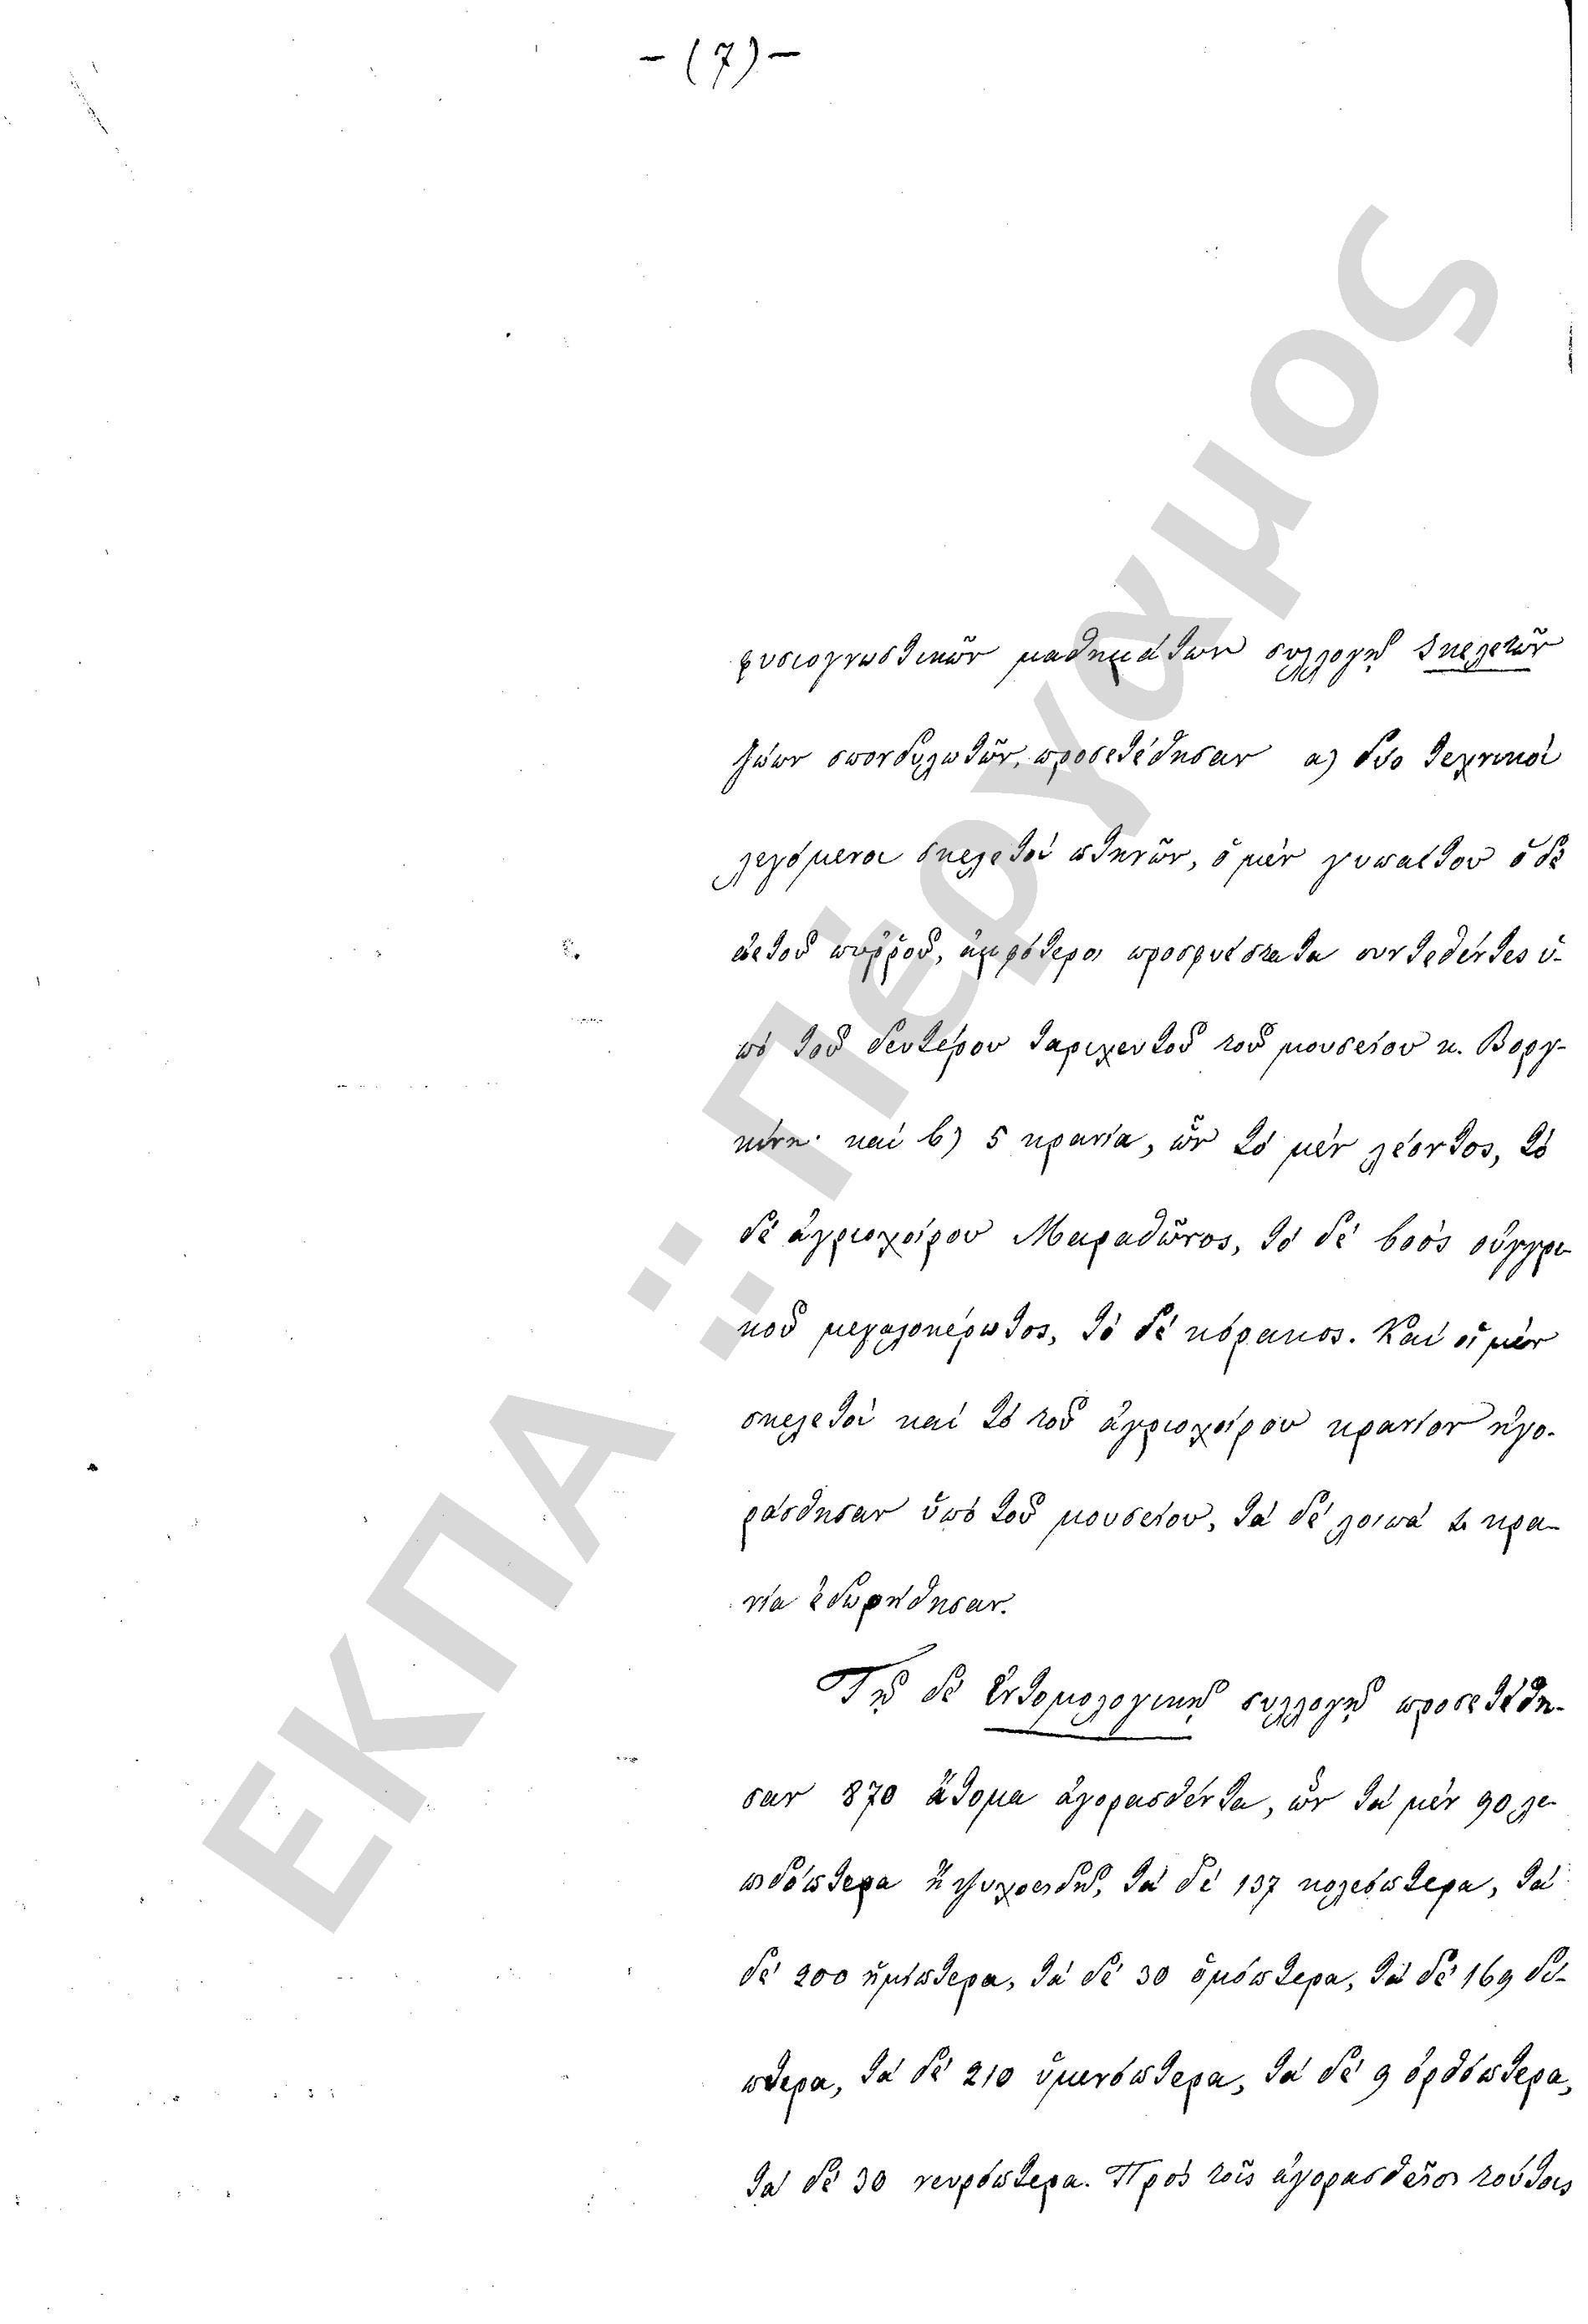 -(7)-
φυσιογνωστικῶν μαθημάτων συλλογῇ σκελετῶν
ζώων σπονδυλωτῶν, προσετέθησαν α) δύο τεχνικοὶ
λεγόμενοι σκελετοὶ πτηνῶν, ὁ μὲν γυπαέτου ὁ δὲ
ἀετοῦ πυρροῦ, ἀμφότεροι προσφυέστατα συντεθέντες ὑ-
πὸ τοῦ δευτέρου ταριχευτοῦ τοῦ μουσείου κ.
καὶ β) 5 κρανία, ὧν τὸ μὲν λέοντος, τὸ
δὲ ἀγριοχοίρου Μαραθῶνος, τὸ δὲ βοὸς οὑγγρι-
κοῦ μεγαλοκέρωτος, τὸ δὲ κόρακος. Καὶ οἱ μὲν
σκελετοὶ καὶ τὸ τοῦ ἀγριοχοίρου κρανίον ἠγο-
ράσθησαν ὑπὸ τοῦ μουσείου, τὰ δὲ λοιπὰ κρα-
νία ἐδωρήθησαν.
Τῇ δὲ ἐντομολογικῇ συλλογῇ προσετέθη-
σαν 870 ἄτομα ἀγορασθέντα, ὧν τὰ μὲν 90 λε-
πιδόπτερα ἢ ψυχοειδῆ, τὰ δὲ 137 κολεόπτερα, τὰ
δὲ 200 ἡμίπτερα, τὰ δὲ 30 ὁμόπτερα, τὰ δὲ 169 δί-
πτερα, τὰ δὲ 210 ὑμενόπτερα, τὰ δὲ 9 ὀρθόπτερα,
τὰ δὲ 30 νευρόπτερα. Πρὸς τοῖς ἀγορασθεῖσι τούτοις
ΕΚΠΑ :: Πέργαμος